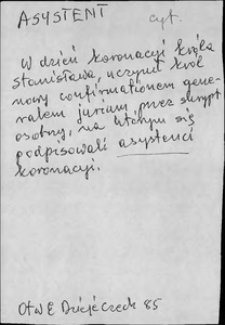 ASYSTENT
cyt.
W dzień koronacyi króla
Stanisława, uczynił król
nowy confirmationem gene-
ralem jurium, przez skrypt
osobny, na którym się
podpisowali asystenci
koronacyi.
OtwE Dziejeczech 85